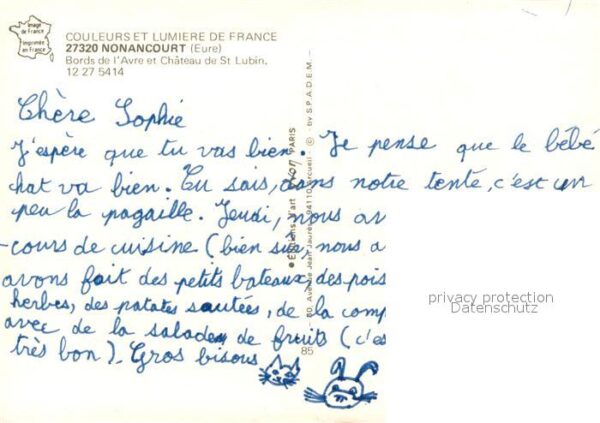 Image
de France
Imprimée
en France
COULEURS ET LUMIERE DE FRANCE
27320 NONANCOURT (Eure)
Bords de l'Avre et Château de St Lubin.
12 27 5414
Chère Sophie
J'espère que tu vas bien. Je pense que le bébé
chat va bien. Tu sais, dans notre tente, c'est un
peu la pagaille. Jeudi, nous av
-cours de cuisine (bien sur, nous a
avons fait des petits bateaux, des pois
herbes, des patates sautées, de la comp
avec de la salade de fruits (c'es
très bon). Gros bisous
• Editions d'art yvon PARIS
80, Avenue Jean Jaurès, 94110 Arcueil - © - by S.P.A.D.E.M.
85
privacy protection
Datenschutz